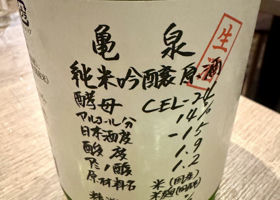 亀泉
生酒
純米吟醸原酒
酵母 CEL-24
アルコール分 14%
日本酒度 -15
酸度 1.9
アミノ酸 1.2
原材料名 米(国産)
米麹(国産)